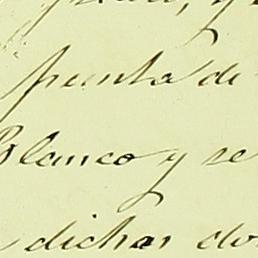 punta de
Blanco y se
dichas dos